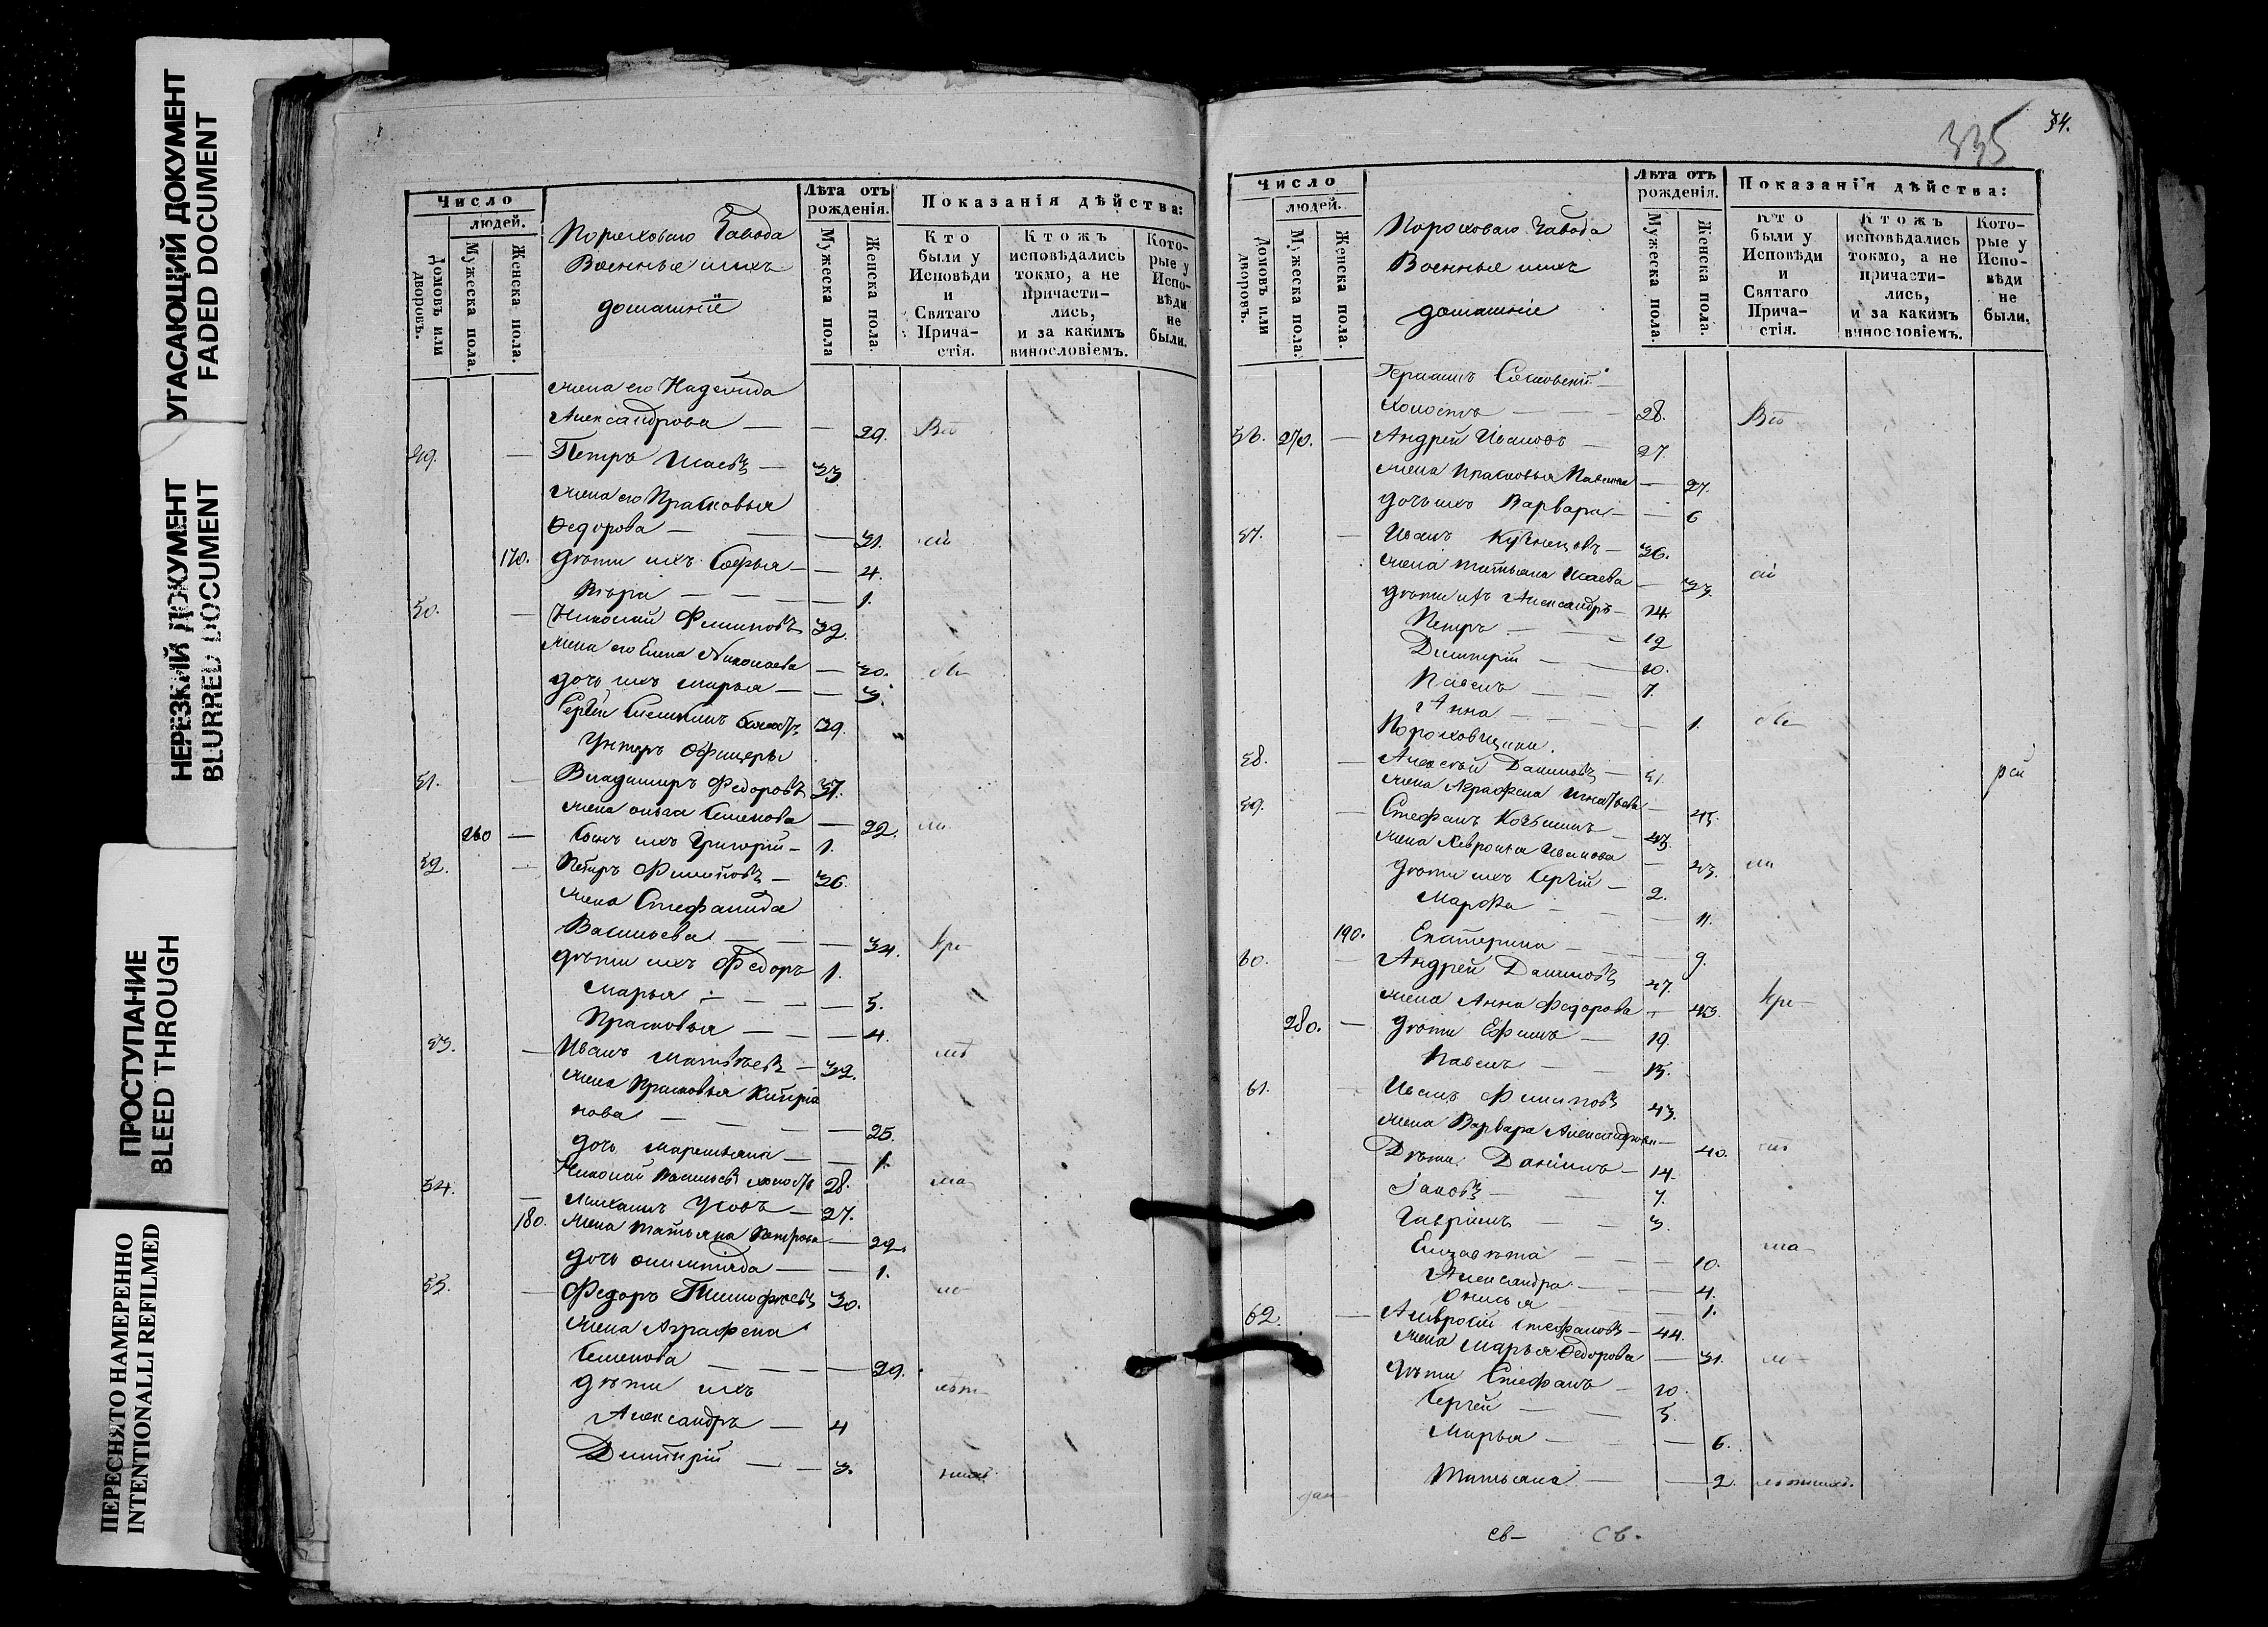 УГАСАЮЩИЙ ДОКУМЕНТ
FADED DOCUMENT
НЕРЕЗКИЙ ДОКУМЕНТ
BLURRED DOCUMENT
ПРОСТУПАНИЕ
BLEED THROUGH
ПЕРЕСНЯТО НАМЕРЕННО
INTENTIONALI REFILMED
Число
людей.
Домовъ или дворовъ.
Мужеска пола.
Женска пола.
Пороховаго Завода
Военные и ихъ
домашніе
Лѣта отъ рожденія.
Мужеска пола
Женска пола.
Показанія дѣйства:
Кто были у Исповѣди и Святаго Прича-стія.
Ктожъ исповѣдались токмо, а не причасти-лись, и за какимъ винословіемъ.
Кото-рые у Испо-вѣди не были.
жена его Надежда
Александрова — — 29.
49. — Петръ Исаевъ — 33
жена его Прасковья
Ѳедорова — — — 31.
170. дѣти ихъ Софья — — 4.
Вѣра — — — — 1.
50. — Николай Филиповъ 32.
жена его Елена Николаева — 30.
дочь ихъ Марья — — 3.
Сергѣй 39.
Унтеръ Офицеры
51. — Владимиръ Федоровъ 37.
жена Ольга Семенова — 22.
260 — Сынъ ихъ Григорій — 1.
52. — Петръ Филиповъ — 36.
жена Стефанида
Васильева — — — 34.
дѣти ихъ Федоръ 1.
Марья — — — — 5.
Прасковья — — — 4.
53. — Иванъ Матвѣевъ — 32.
жена Прасковья Кипріа
нова — — — — 25.
дочь Маремьяна — — 1.
Николай Васильевъ холостъ 28.
54. — Михаилъ Усовъ — 27.
180. жена Татьяна Петрова — 22.
дочь Олимпіяда — — 1.
55. — Федоръ Тимофѣевъ 30.
жена Аграфена
Семенова — — — — 29.
дѣти ихъ
Александръ — 4
Димитрій — — 3.
335
34.
Число
людей.
Домовъ или дворовъ.
Мужеска пола.
Женска пола.
Пороховаго Завода
Военные и ихъ
домашніе
Лѣта отъ рожденія.
Мужеска пола.
Женска пола.
Показанія дѣйства:
Кто были у Исповѣди и Святаго Прича-стія.
Ктожъ исповѣдались токмо, а не причасти-лись, и за какимъ винословіемъ.
Кото-рые у Испо-вѣди не были.
холостъ — — 28.
56. 270. — Андрей Ивановъ — 27.
жена Прасковья Павлова — 27.
дочь ихъ Варвара — — 6
57. — Иванъ Кузнецовъ — 36.
жена Татьяна Исаева — 33.
дѣти ихъ Александръ — 14.
Петръ — — 12
Димитрій — — 10.
Павелъ — — 7.
Анна — — — — 1.
Пороховщики.
58. — Алексѣй Даниловъ — 51.
жена Аграфена Игнатьева — 45.
59. — Стефанъ — 43.
жена Хевронья Иванова — 43.
дѣти ихъ Сергій — 2.
Марфа — — — 11.
190. Екатерина — — 9.
60. — Андрей Даниловъ 47.
жена Анна Федорова — 43.
280. — дѣти Ефимъ — 19.
Павелъ — — 15.
61. — Иванъ Филиповъ 43.
жена Варвара Александрова — 40.
Дѣти Даніилъ — 14.
Іаковъ — — 7.
Гавріилъ — — 3.
Елизавета — — 10.
Александра — — 4.
Анисья — — 1.
62. — Амвросій Стефановъ — 44.
жена Марья Ѳедорова — 31.
дѣти Стефанъ — 10.
Сергей — — 5.
Марья — — 6.
Татьяна — — 2.
св—
св.